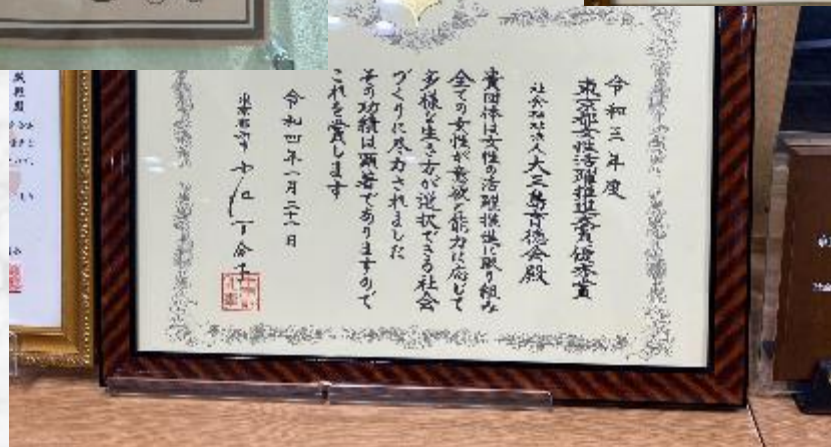 令和三年度
東京都女性活躍推進大賞優秀賞
社会福祉法人大三島育徳会殿
貴団体は女性の活躍推進に取り組み
全ての女性が意欲と能力に応じて
多様な生き方が選択できる社会
づくりに尽力されました
その功績は顕著でありますので
これを賞します
令和四年一月二十一日
東京都知事 小池百合子